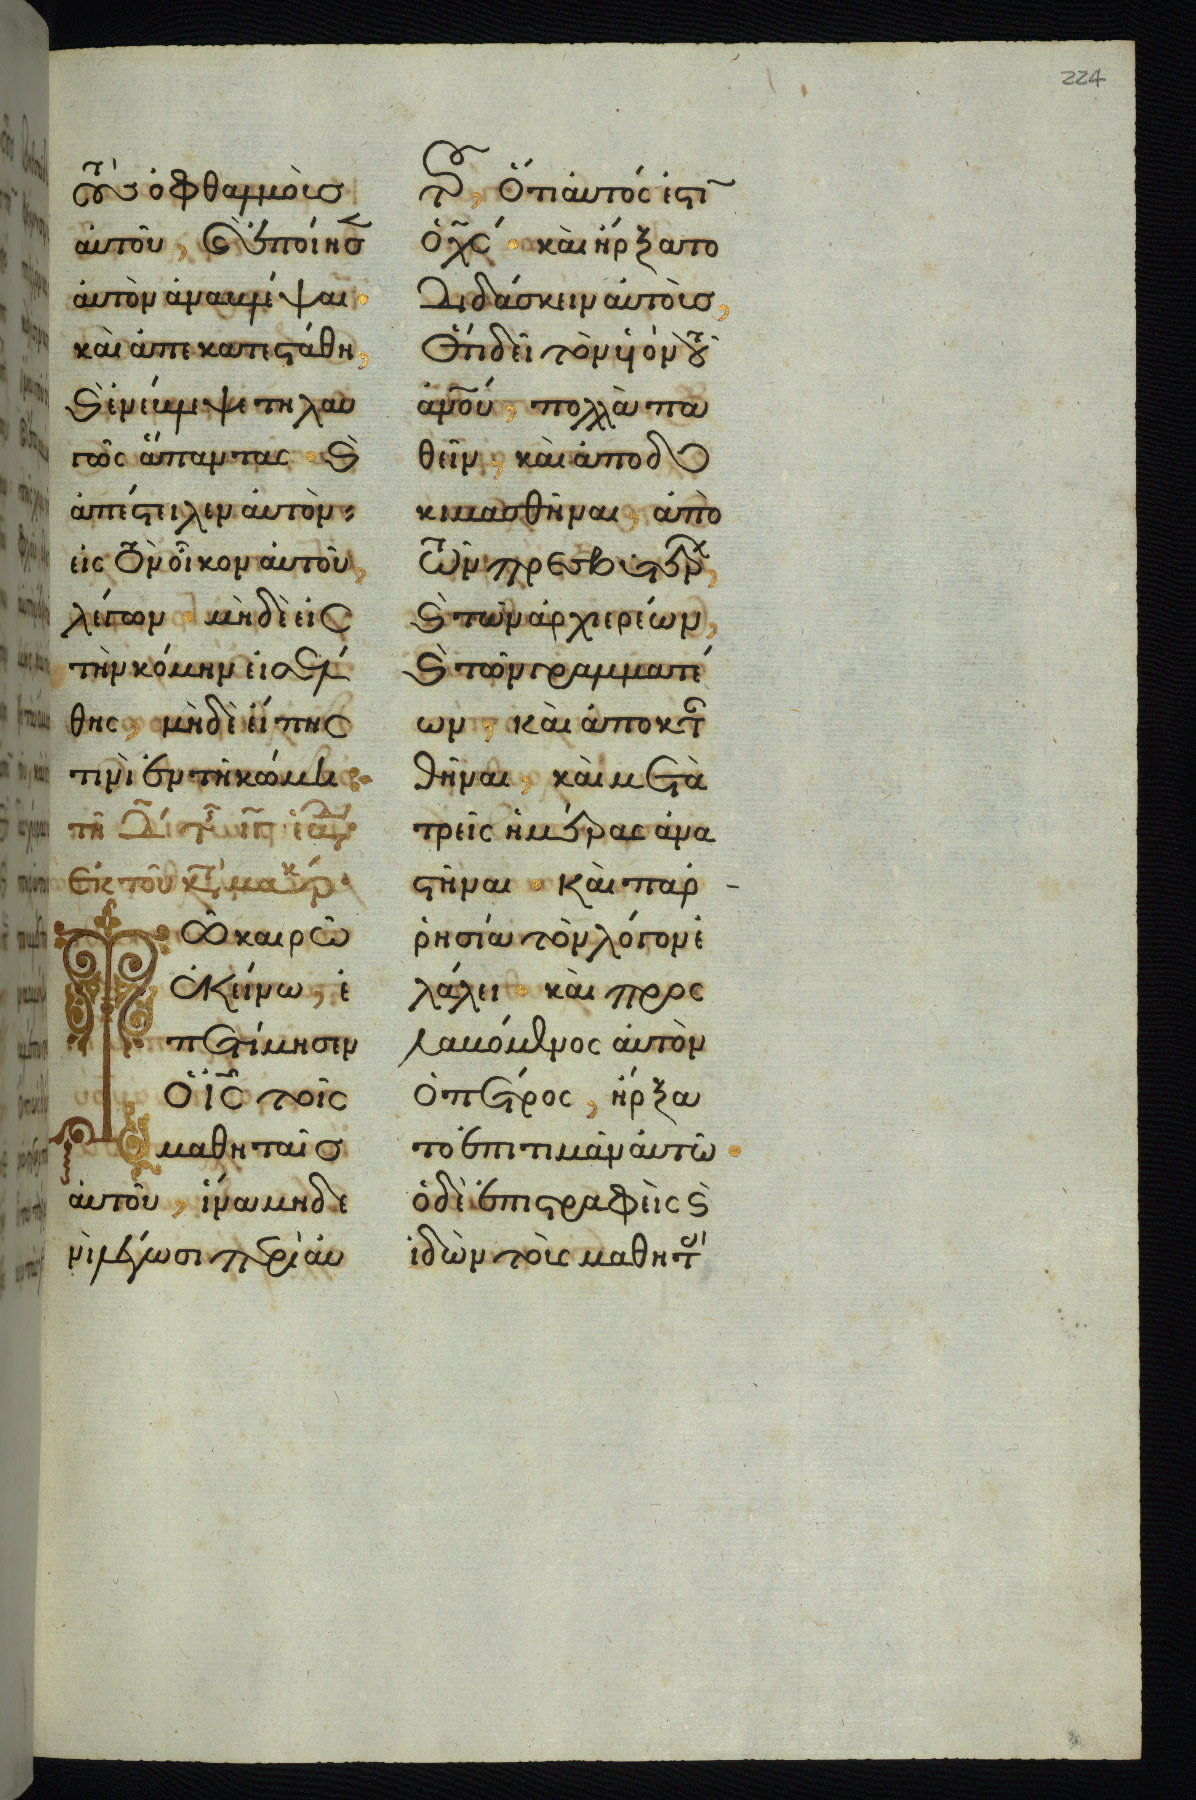 224
τοὺς ὀφθαλμοὺς
αὐτοῦ, καὶ ἐποίησεν
αὐτὸν ἀναβλέψαι.
καὶ ἀπεκατεστάθη,
καὶ ἐνέβλεψε τηλαυ
γῶς ἅπαντας. καὶ
ἀπέστειλεν αὐτὸν
εἰς τὸν οἶκον αὐτοῦ,
λέγων. μὴδὲ εἰς
τὴν κόμην εἰσέλ
θης, μὴδὲ εἴπης
τινὶ ἐν τῆ κώμη
ἐκ τοῦ κατὰ μάρκον
Τῶ καιρῶ
ἐκείνω, ἐ
πετίμησεν
ὁ ἰς τοῖς
μαθηταῖς
αὐτοῦ, ἵνα μηδε
νὶ λέγωσι περὶ αὐ
τοῦ, ὅτι αὐτός ἐστιν
ὁ χς. καὶ ἤρξατο
διδάσκειν αὐτοῖς,
ὅτι δεῖ τὸν υἱὸν τοῦ
ανου, πολλὰ πα
θεῖν, καὶ ἀποδο
κιμασθῆναι, ἀπὸ
τῶν πρεσβυτέρων,
καὶ τῶν ἀρχιερέων,
καὶ τῶν γραμματέ
ων, καὶ ἀποκταν
θῆναι, καὶ μετὰ
τρεῖς ἡμέρας ἀνα
στῆναι. καὶ παρ
ρησία τὸν λόγον ἐ
λάλει. καὶ προς
λαβόμενος αὐτὸν
ὁ πέτρος, ἤρξα
το ἐπιτιμᾶν αὐτῶ.
ὁ δὲ ἐπιστραφεὶς καὶ
ἰδὼν τοὺς μαθητὰς